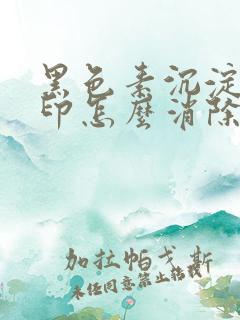 黑色素沉淀
印怎麼消除
加拉帕戈斯
未经同意禁止转载